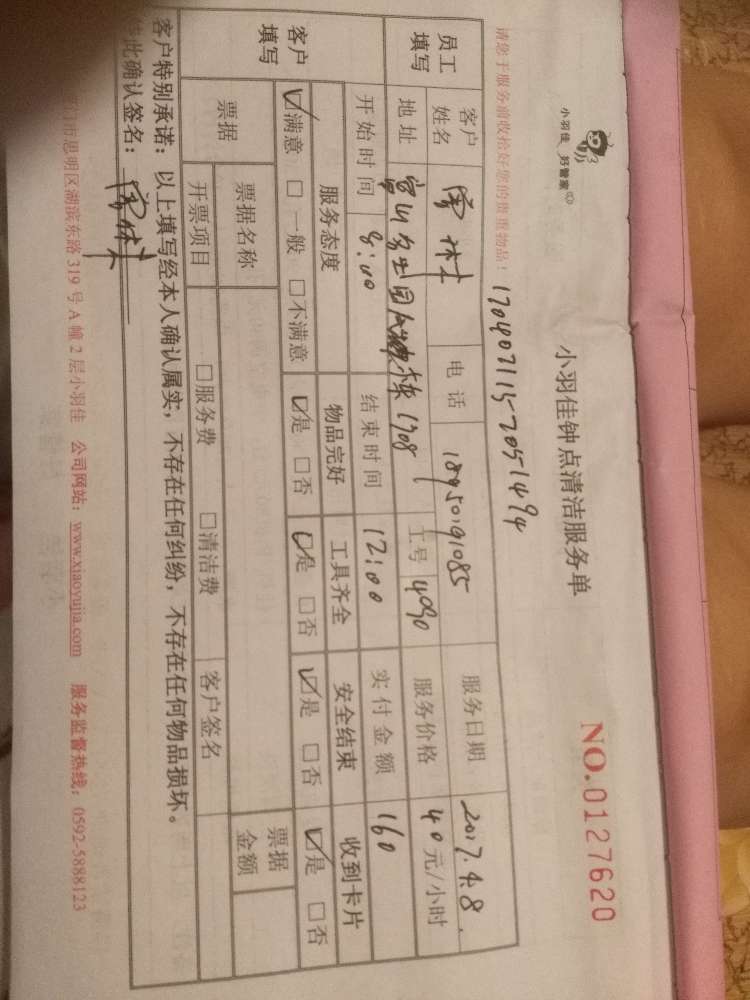 小羽佳 好管家
小羽佳钟点清洁服务单
NO.0127620
请您于服务前收拾好您的贵重物品!
1704071152051494
员工填写 客户姓名 电话 18950191085 服务日期 2017.4.8.
地址 1708 工号 4090 服务价格 40元/小时
开始时间 8:00 结束时间 12:00 实付金额 160
客户填写 服务态度 物品完好 工具齐全 安全结束 收到卡片
☑满意 □一般 □不满意 ☑是 □否 ☑是 □否 ☑是 □否 ☑是 □否
票据 票据名称 票据金额
开票项目 □服务费 □清洁费 客户签名
客户特别承诺:以上填写经本人确认属实,不存在任何纠纷,不存在任何物品损坏。
此确认签名:
门市思明区湖滨东路319号A幢2层小羽佳 公司网站:www.xiaoyujia.com 服务监督热线:0592-5888123